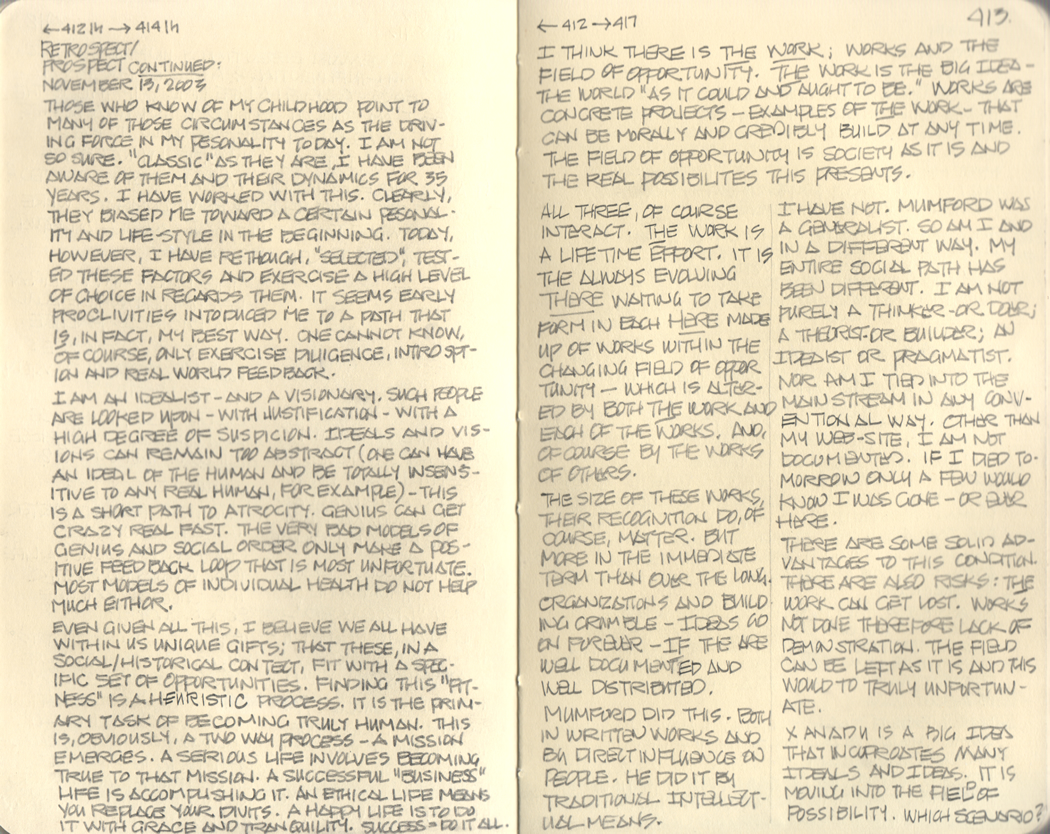 ←412/h →414/h
RETROSPECT/
PROSPECT CONTINUED:
NOVEMBER 13, 2003
THOSE WHO KNOW OF MY CHILDHOOD POINT TO
MANY OF THOSE CIRCUMSTANCES AS THE DRIV-
ING FORCE IN MY PESONALITY TODAY. I AM NOT
SO SURE. "CLASSIC" AS THEY ARE, I HAVE BEEN
AWARE OF THEM AND THEIR DYNAMICS FOR 35
YEARS. I HAVE WORKED WITH THIS. CLEARLY,
THEY BIASED ME TOWARD A CERTAIN PESONAL-
ITY AND LIFE-STYLE IN THE BEGINNING. TODAY,
HOWEVER, I HAVE RETHOUGH, "SELECTED", TEST-
ED THESE FACTORS AND EXERCISE A HIGH LEVEL
OF CHOICE IN REGARDS THEM. IT SEEMS EARLY
PROCLIVITIES INTODUCED ME TO A PATH THAT
IS, IN FACT, MY BEST WAY. ONE CANNOT KNOW,
OF COURSE, ONLY EXERCISE DILIGENCE, INTROSPT-
ION AND REAL WORLD FEEDBACK.
I AM AN IDEALIST - AND A VISIONARY. SUCH PEOPLE
ARE LOOKED UPON - WITH JUSTIFICATION - WITH A
HIGH DEGREE OF SUSPICION. IDEALS AND VIS-
IONS CAN REMAIN TOO ABSTRACT (ONE CAN HAVE
AN IDEAL OF THE HUMAN AND BE TOTALLY INSENS-
ITIVE TO ANY REAL HUMAN, FOR EXAMPLE) - THIS
IS A SHORT PATH TO ATROCITY. GENIUS CAN GET
CRAZY REAL FAST. THE VERY BAD MODELS OF
GENIUS AND SOCIAL ORDER ONLY MAKE A POS-
ITIVE FEED BACK LOOP THAT IS MOST UNFORTUATE.
MOST MODELS OF INDIVIDUAL HEALTH DO NOT HELP
MUCH EITHOR.
EVEN GIVEN ALL THIS, I BELIEVE WE ALL HAVE
WITHIN US UNIQUE GIFTS; THAT THESE, IN A
SOCIAL/HISTORICAL CONTECT, FIT WITH A SPEC-
IFIC SET OF OPPORTUNITIES. FINDING THIS "FIT-
NESS" IS A HEURISTIC PROCESS. IT IS THE PRIM-
ARY TASK OF BECOMING TRULY HUMAN. THIS
IS, OBVIOUSLY, A TWO WAY PROCESS - A MISSION
EMERGES. A SERIOUS LIFE INVOLVES BECOMING
TRUE TO THAT MISSION. A SUCCESSFUL "BUSINESS"
LIFE IS ACCOMPLISHING IT. AN ETHICAL LIFE MEANS
YOU REPLACE YOUR DIVITS. A HAPPY LIFE IS TO DO
IT WITH GRACE AND TRANQUILITY. SUCCESS = DO IT ALL.
←412 →417
413.
I THINK THERE IS THE WORK; WORKS AND THE
FIELD OF OPPORTUNITY. THE WORK IS THE BIG IDEA -
THE WORLD "AS IT COULD AND AUGHT TO BE." WORKS ARE
CONCRETE PROJECTS - EXAMPLES OF THE WORK - THAT
CAN BE MORALLY AND CREDIBLY BUILD AT ANY TIME.
THE FIELD OF OPPORTUNITY IS SOCIETY AS IT IS AND
THE REAL POSSIBILITES THIS PRESENTS.
ALL THREE, OF COURSE
INTERACT. THE WORK IS
A LIFETIME EFFORT. IT IS
THE ALWAYS EVOLVING
THERE WAITING TO TAKE
FORM IN EACH HERE MADE
UP OF WORKS WITHIN THE
CHANGING FIELD OF OPPOR
TUNITY - WHICH IS ALTER-
ED BY BOTH THE WORK AND
EACH OF THE WORKS. AND,
OF COURSE BY THE WORKS
OF OTHERS.
THE SIZE OF THESE WORKS,
THEIR RECOGNITION DO, OF
COURSE, MATTER. BUT
MORE IN THE IMMEDIATE
TERM THAN OVER THE LONG.
ORGANIZATIONS AND BUILD
ING CRUMBLE - IDEAS GO
ON FOREVER - IF THE ARE
WELL DOCUMENTED AND
WELL DISTRIBUTED.
MUMFORD DID THIS. BOTH
IN WRITTEN WORKS AND
BY DIRECT INFLUENCE ON
PEOPLE. HE DID IT BY
TRADITIONAL INTELLECT-
UAL MEANS.
I HAVE NOT. MUMFORD WAS
A GENERALIST. SO AM I AND
IN A DIFFERENT WAY. MY
ENTIRE SOCIAL PATH HAS
BEEN DIFFERENT. I AM NOT
PURELY A THINKER - OR DOER;
A THEORIST OR BUILDER; AN
IDEAIST OR PRAGMATIST.
NOR AM I TIED INTO THE
MAIN STREAM IN ANY CONV-
ENTIONAL WAY. OTHER THAN
MY WEB-SITE, I AM NOT
DOCUMENTED. IF I DIED TO-
MORROW ONLY A FEW WOULD
KNOW I WAS GONE - OR EVER
HERE.
THERE ARE SOME SOLID AD-
VANTAGES TO THIS CONDITION.
THERE ARE ALSO RISKS: THE
WORK CAN GET LOST. WORKS
NOT DONE THEREFORE LACK OF
DEMINSTRATION. THE FIELD
CAN BE LEFT AS IT IS AND THIS
WOULD TO TRULY UNFORTUN-
ATE.
XANADU IS A BIG IDEA
THAT INCORPROATES MANY
IDEALS AND IDEAS. IT IS
MOVING INTO THE FIELD OF
POSSIBILITY. WHICH SCENARIO?